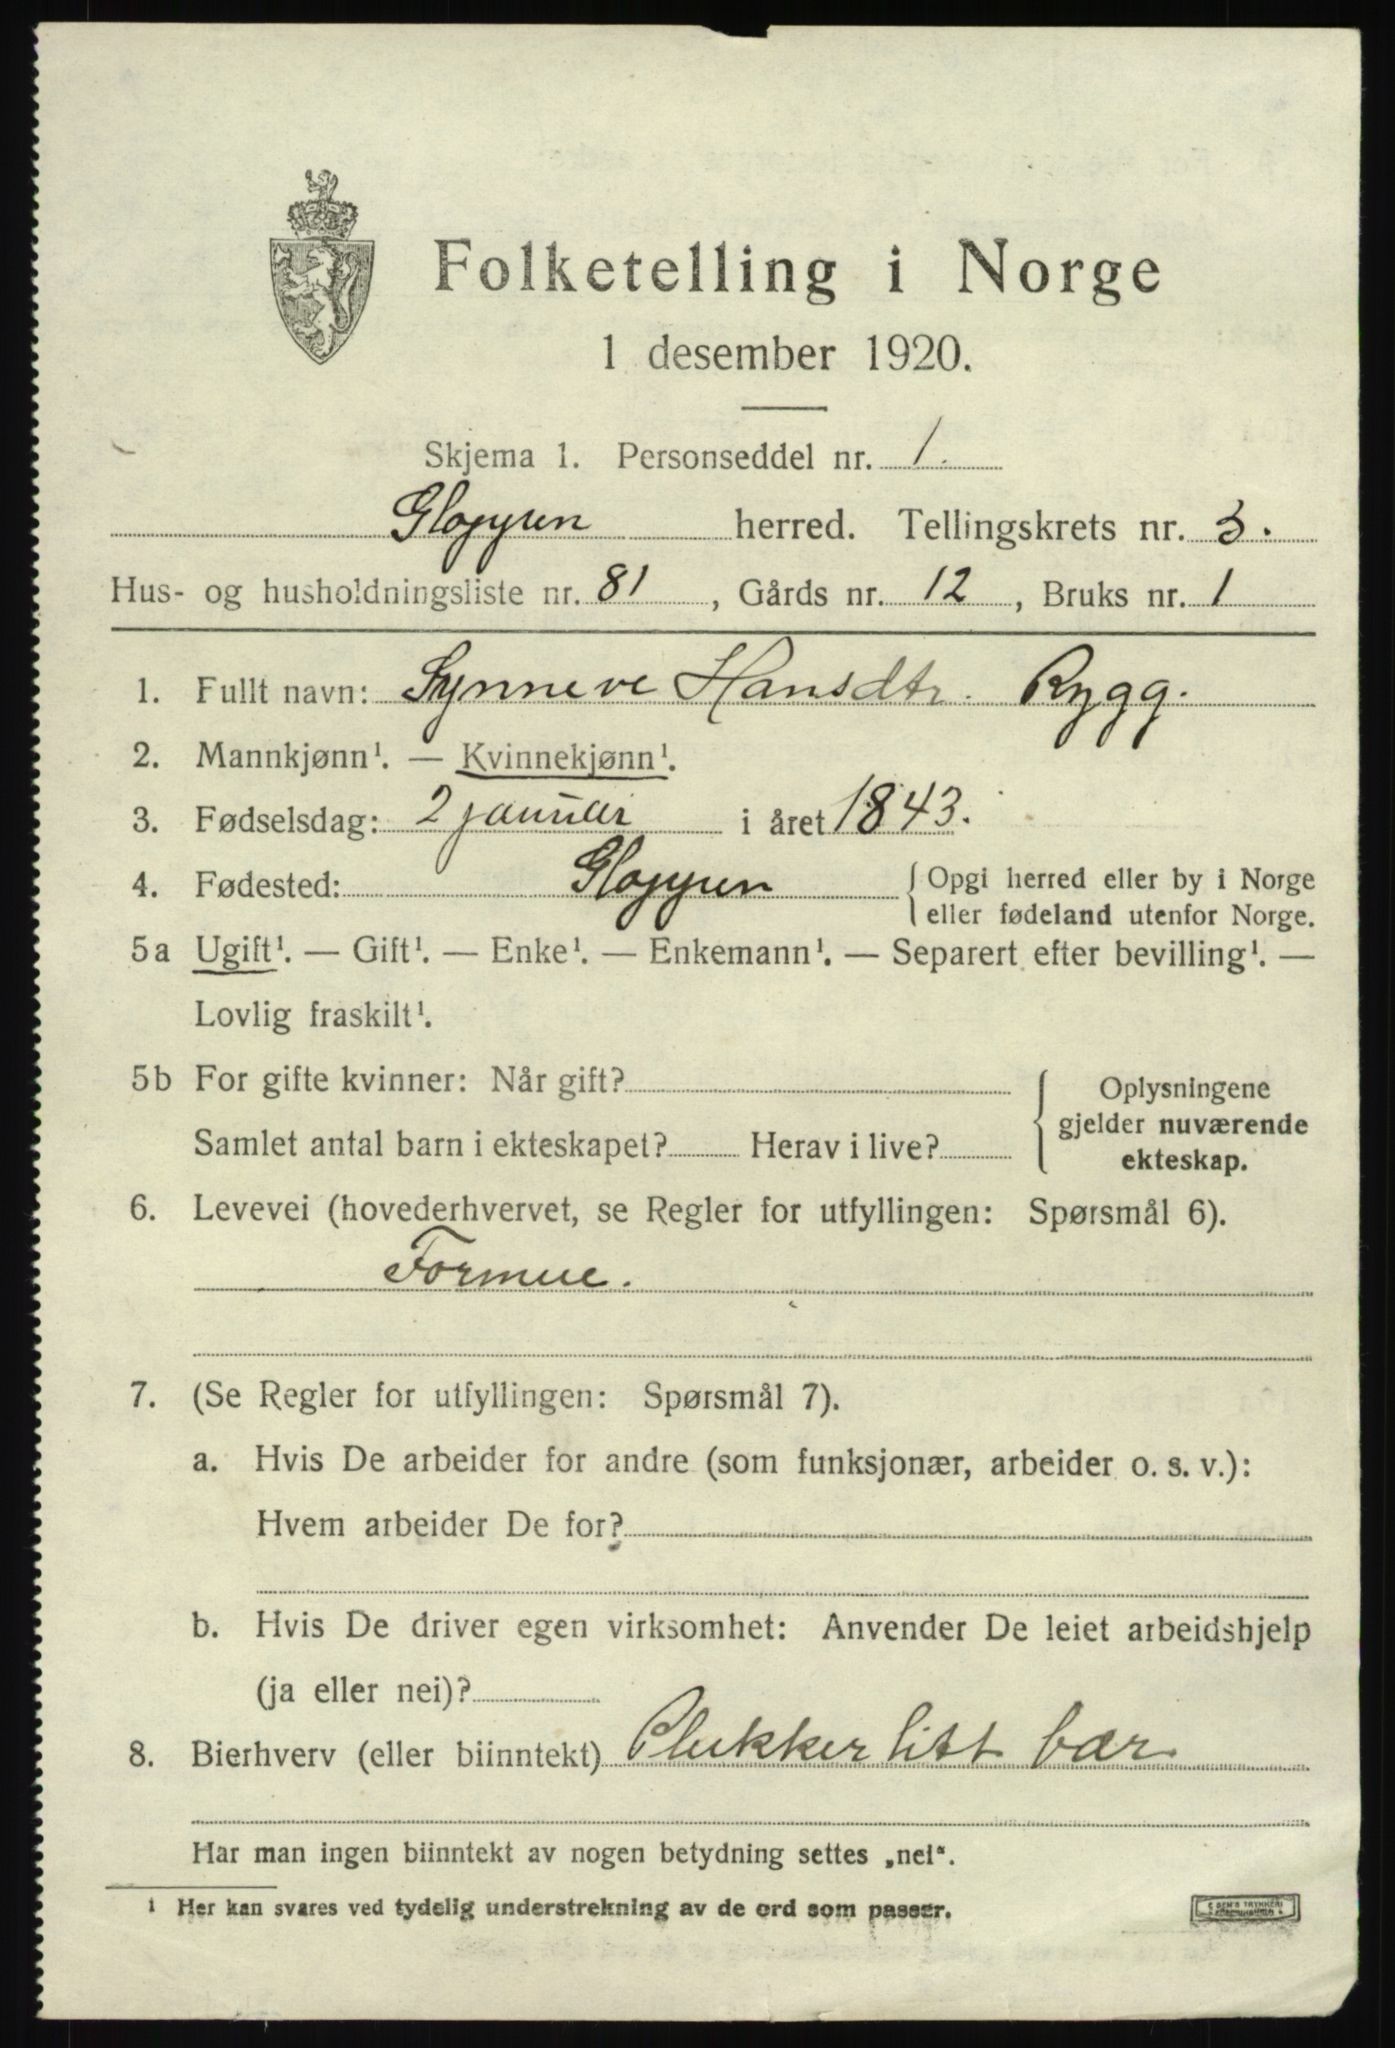 Folketelling i Norge
1 desember 1920.
Skjema 1. Personseddel nr. 1.
Gloppen herred. Tellingskrets nr. 3.
Hus- og husholdningsliste nr. 81, Gårds nr. 12, Bruks nr. 1
1. Fullt navn: Synneve Hansdtr. Rygg.
2. Mannkjønn¹. — Kvinnekjønn¹.
3. Fødselsdag: 2 januar i året 1843.
4. Fødested: Gloppen { Opgi herred eller by i Norge
eller fødeland utenfor Norge.
5a Ugift¹. — Gift¹. — Enke¹. — Enkemann¹. — Separert efter bevilling¹. —
Lovlig fraskilt¹.
5b For gifte kvinner: Når gift?
Samlet antal barn i ekteskapet? Herav i live?
{ Oplysningene
gjelder nuværende
ekteskap.
6. Levevei (hovederhvervet, se Regler for utfyllingen: Spørsmål 6).
Formue.
7. (Se Regler for utfyllingen: Spørsmål 7).
a. Hvis De arbeider for andre (som funksjonær, arbeider o. s. v.):
Hvem arbeider De for?
b. Hvis De driver egen virksomhet: Anvender De leiet arbeidshjelp
(ja eller nei)?
8. Bierhverv (eller biinntekt) Plukker litt bær
Har man ingen biinntekt av nogen betydning settes „nei“.
¹ Her kan svares ved tydelig understrekning av de ord som passer.